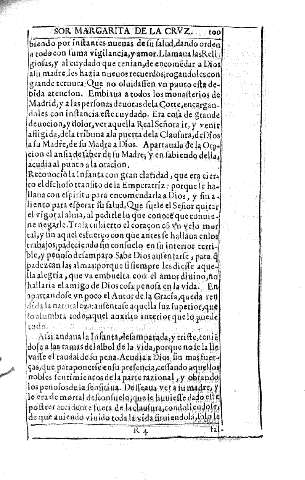 SOR MARGARITA DE LA CRVZ. 100
biando por instantes nueuas de su salud, dando orden
a todo con suma vigilancia, y amor. Llamaua las Reli
giosas, y al cuydado que tenian, de encomēdar a Dios
a su madre, les hazia nueuos recuerdos, rogandoles con
grande ternura. Que no oluidassen vn punto esta de-
bida atencion. Embiaua a todos los monasterios de
Madrid, y a las personas deuotas de la Corte, encargan-
doles con instancia este cuydado. Era cosa de grande
deuocion, y dolor, ver aquella Real Señora ir, y venir
afligida, de la tribuna a la puerta de la Clausura, de Dios
a su Madre, de su Madre a Dios. Apartauala de la Ora-
cion el ansia de saber de su Madre, y en sabiendo della,
acudia al punto a la oracion.
Reconociò la Infanta con gran claridad, que era cier-
to el dichoso transito de la Emperatriz: porque se ha-
llaua con espiritu para encomendarla a Dios, y sin a-
liento para esperar su salud. Que suele el Señor quitar
el vigor al alma, al pedirle lo que conoce que conuie-
ne negarle. Traia cubierto el coraçon cō vn velo mor-
tal, y sin aquel esfuerço con que antes se hallaua en los
trabajos, padeciendo sin consuelo en su interior terri-
ble, y penoso desamparo. Sabe Dios ausentarse, para q̄
padezcan las almas: porque si siempre les diesse aque-
lla alegria, que va embuelta con el amor diuino, no
hallaria el amigo de Dios cosa penosa en la vida. En
apartandose vn poco el Autor de la Gracia, queda ren
dida la naturaleza: ausentase aquella luz superior, que
lo alumbra todo, aquel auxilio interior que lo puede
todo.
Assi andaua la Infanta, desamparada, y triste, tenien
dose a las ramas del arbol de la vida, porque no se la lle
uasse el raudal de su pena. Acudia a Dios sin mas fuer-
ças, que para ponerse en su presencia, cessando aquellos
nobles sentimientos de la parte racional, y obrando
los penosos de la sensitiua. Desseaua ver a su madre, y
le era de mortal desconsuelo, que le huuiesse dado este
postrer accidente fuera de la clausura, condoliendose,
de que auiendo viuido toda la vida siruiendola, solo le
R 4 fal